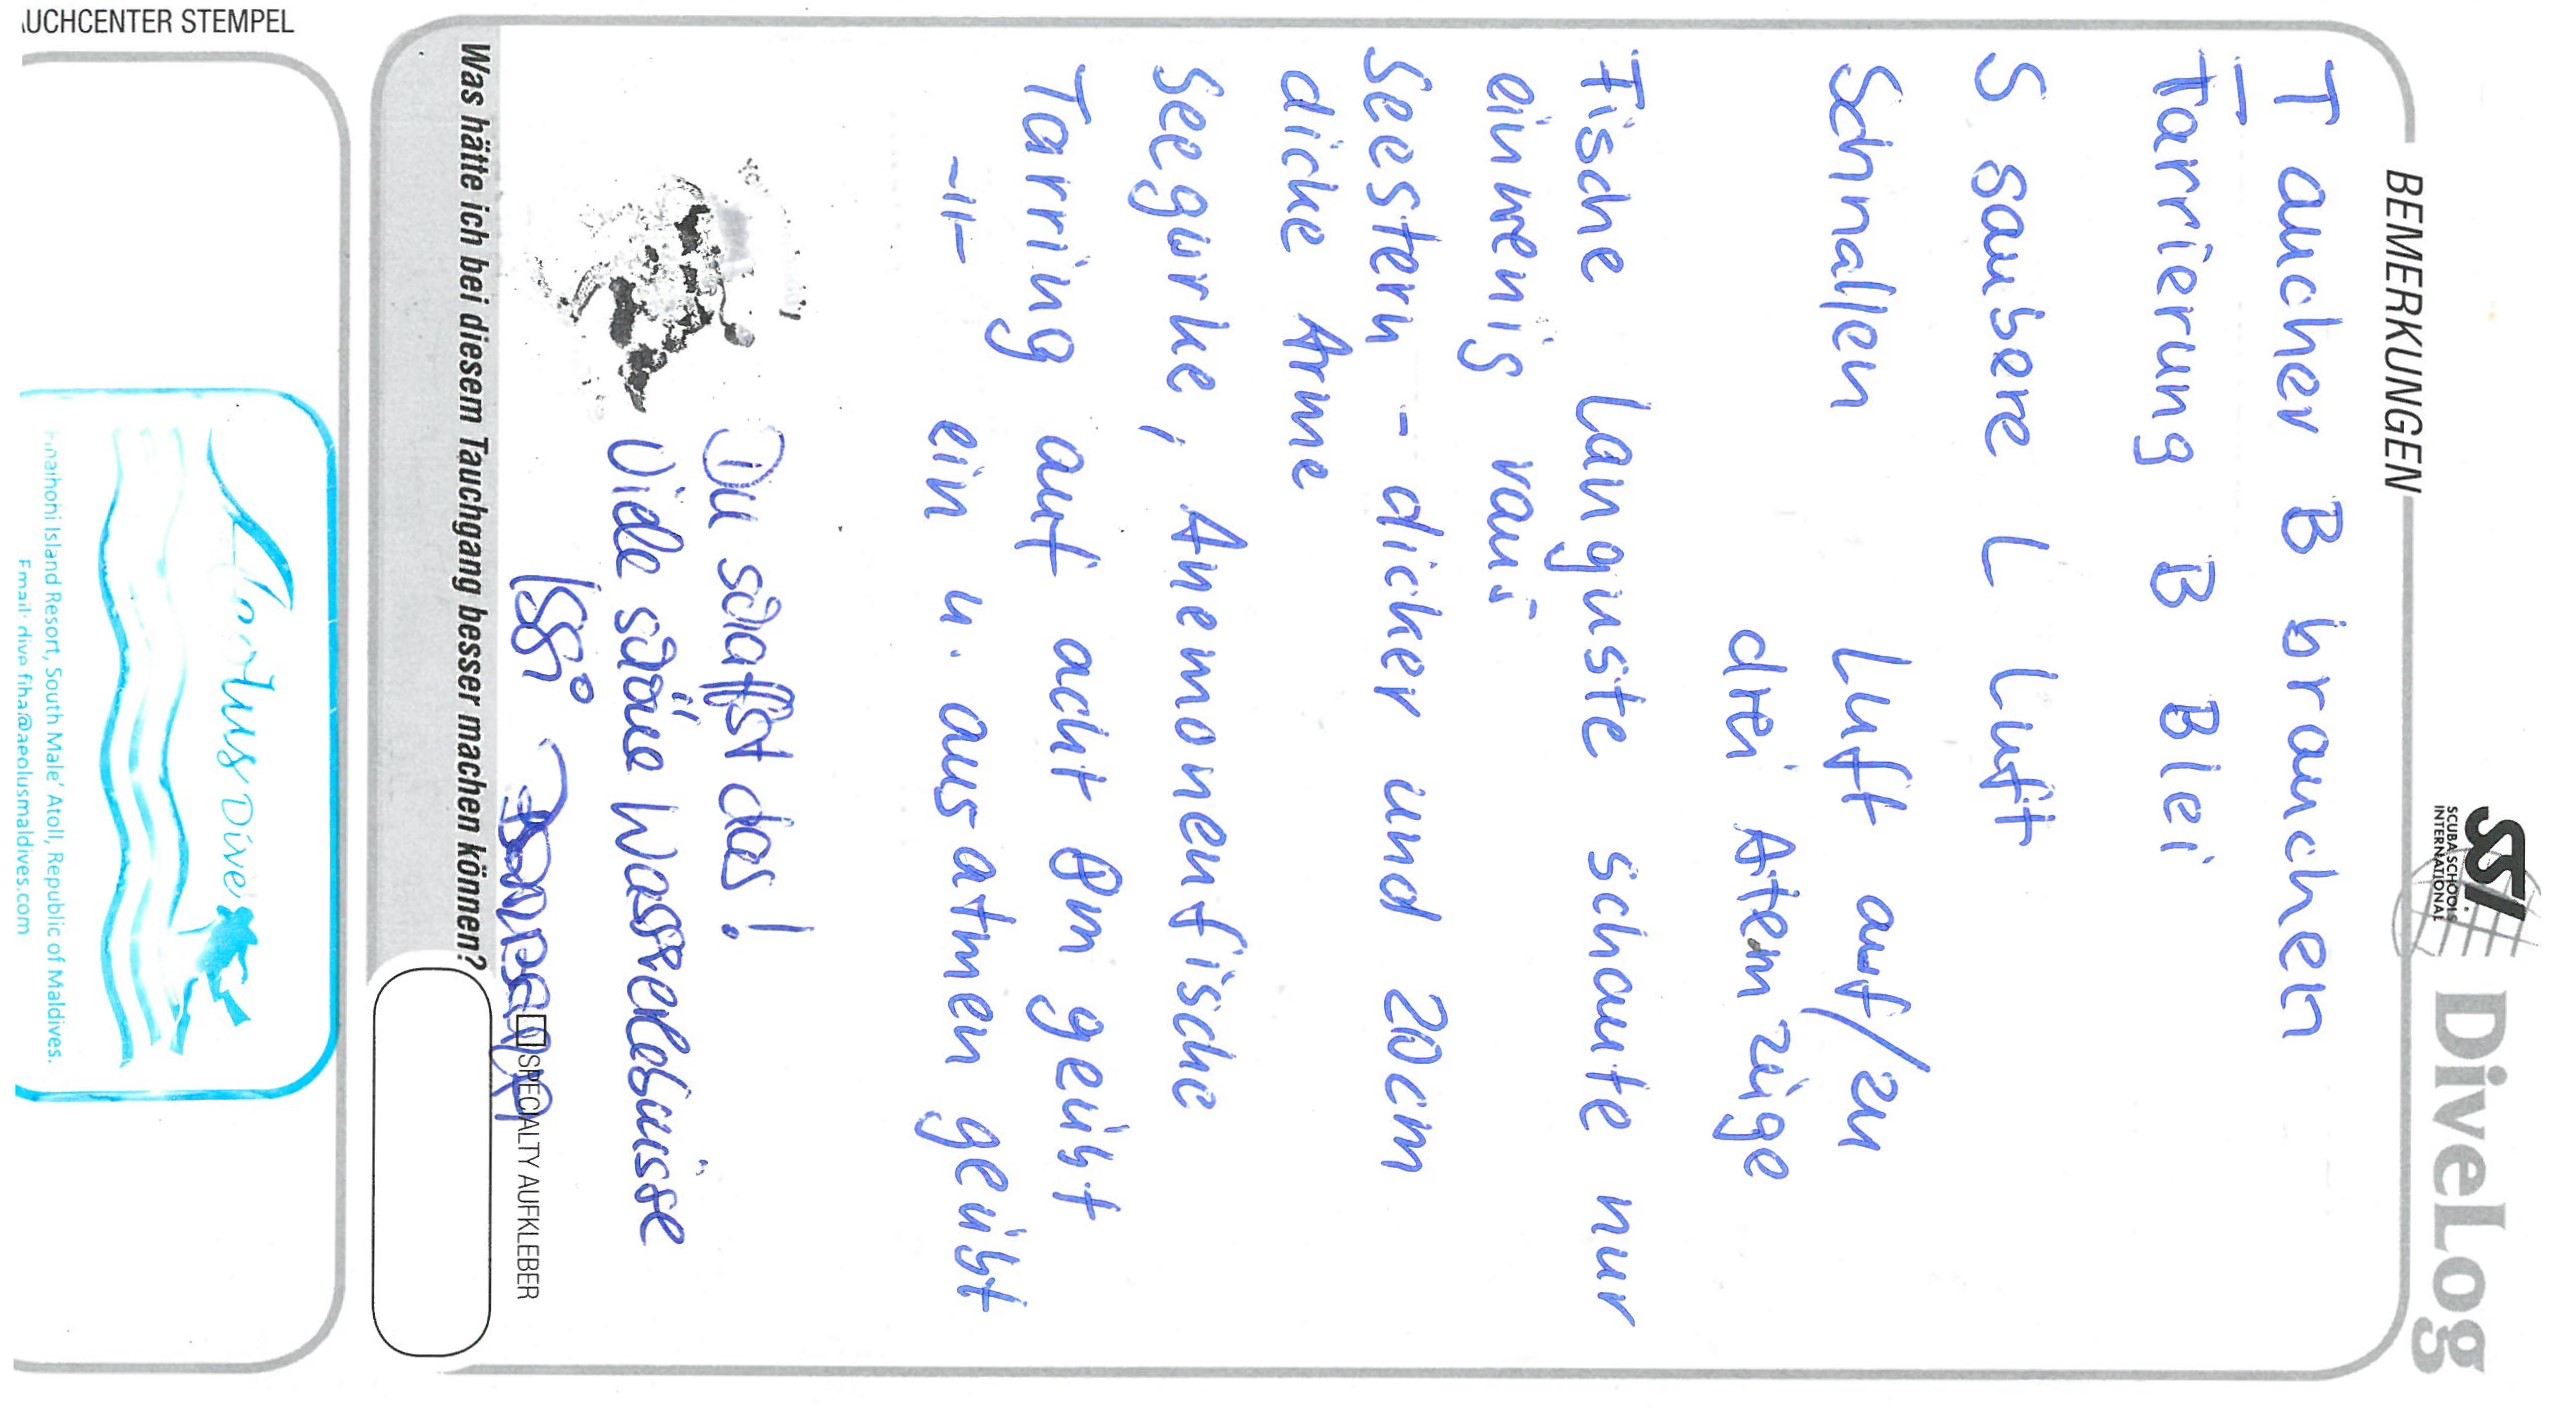 SSI
SCUBA SCHOOLS
INTERNATIONAL
DiveLog
BEMERKUNGEN
Taucher B brauchen
Tarrierung B Blei
S saubere L Luft
Schnallen Luft auf/zu
drei Atemzüge
Fische Languste schaute nur
einwenig raus
Seestern - dicker und 20cm
dicke Arme
Seegurke, Anemonenfische
Tarring auf acht 8m geübt
-11- ein u. ausatmen geübt
Du schaffst das!
Viele schöne Wassererlebnisse
ISSI
SPECIALTY AUFKLEBER
Was hätte ich bei diesem Tauchgang besser machen können?
AUCHCENTER STEMPEL
Dive
Island Resort, South Male' Atoll, Republic of Maldives.
Email: dive.fiha@aeolusmaldives.com